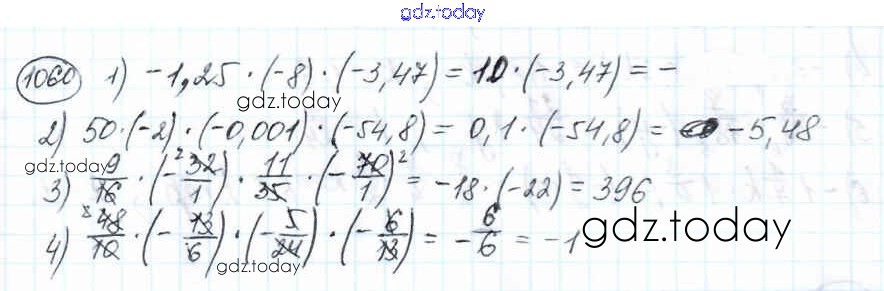 gdz.today
1060 1) -1,25 · (-8) · (-3,47) = 10 · (-3,47) = -
gdz.today
2) 50 · (-2) · (-0,001) · (-54,8) = 0,1 · (-54,8) = -5,48
gdz.today
3) 9/16 · (-32/1)² · 11/35 · (-70/1)² = -18 · (-22) = 396
4) 8 48/10 · (-13/6) · (-5/24) · (-6/13) = -6/6 = -1
gdz.today
gdz.today